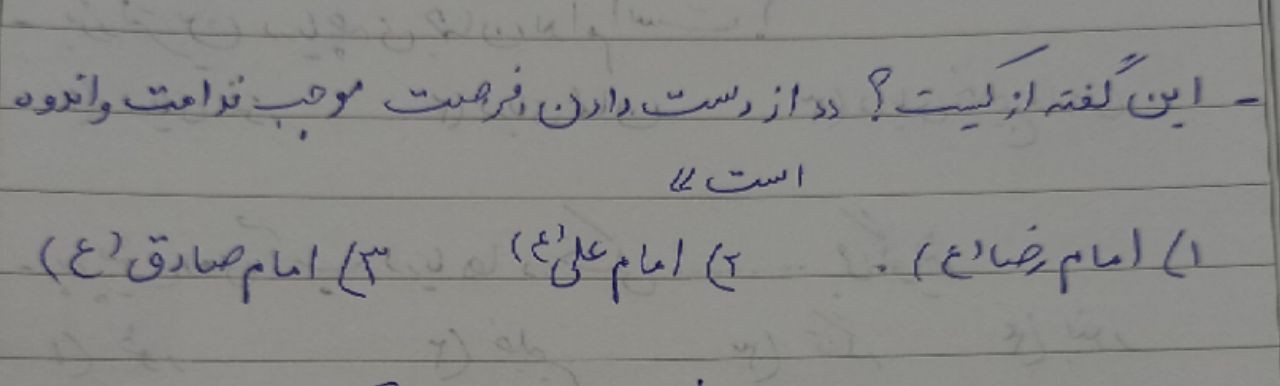 - این گفته از کیست؟ «از دست دادن فرصت موجب ندامت و اندوه
است»
۱) امام رضا (ع) ۲) امام علی (ع) ۳) امام صادق (ع)